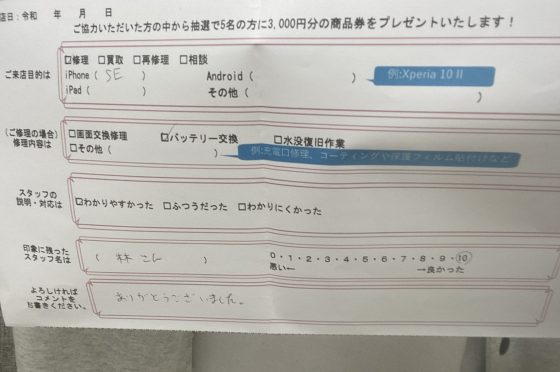 店日：令和　年　月　日
ご協力いただいた方の中から抽選で5名の方に3,000円分の商品券をプレゼントいたします！
ご来店目的は
☑修理 □買取 □再修理 □相談
iPhone（ SE ） Android（ ） 例:Xperia 10 II
iPad（ ） その他（ ）
（ご修理の場合）
修理内容は
□画面交換修理 ☑バッテリー交換 □水没復旧作業
□その他（ ） 例:充電口修理、コーティングや保護フィルム貼付けなど
スタッフの
説明・対応は
☑わかりやすかった □ふつうだった □わかりにくかった
印象に残った
スタッフ名は
（ 林さん ）
0・1・2・3・4・5・6・7・8・9・⑩
悪い← →良かった
よろしければ
コメントを
お書きください。
ありがとうございました。